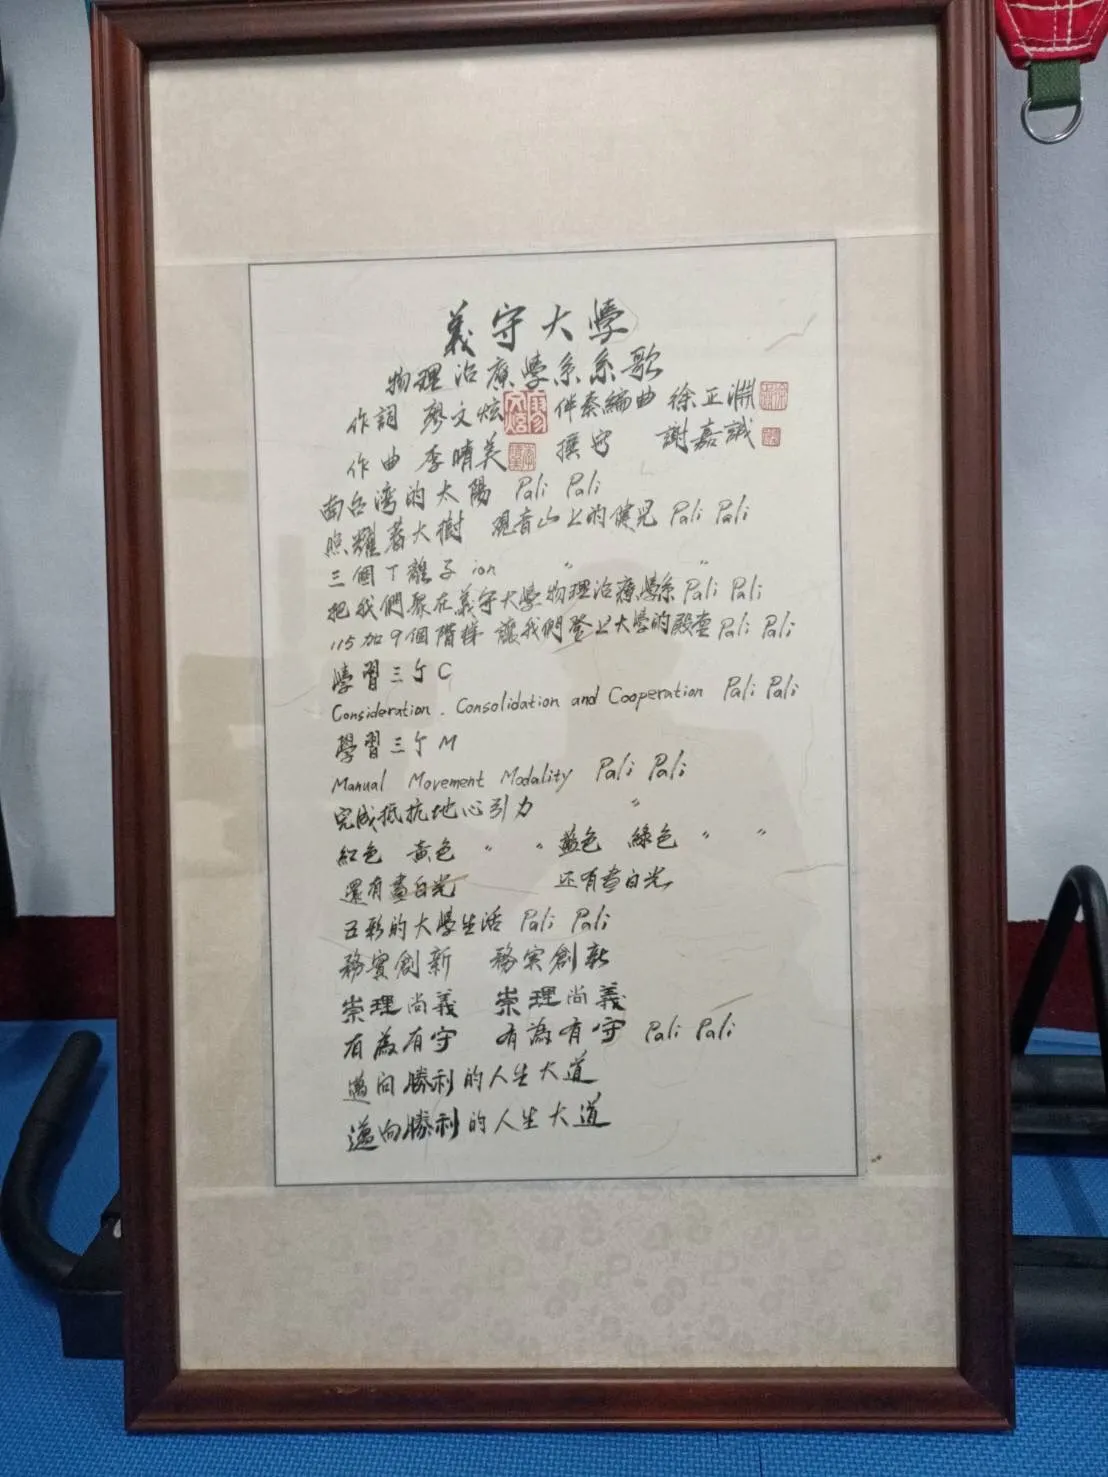 義守大學
物理治療學系系歌
作詞 廖文炫 伴奏編曲 徐正淵
作曲 李晴美 撰寫 謝嘉誠
南台湾的太陽 Pali Pali
照耀著大樹 觀音山上的健兒 Pali Pali
三個T離子 ion 〃 〃
把我們聚在義守大學物理治療學系 Pali Pali
115加9個階梯 讓我們登上大學的殿堂 Pali Pali
學習三个C
Consideration. Consolidation and Cooperation Pali Pali
學習三个M
Manual Movement Modality Pali Pali
完成抵抗地心引力 〃
紅色 黃色 〃 〃 藍色 綠色 〃 〃
還有晝白光 还有晝白光
五彩的大學生活 Pali Pali
務實創新 務实創新
崇理尚義 崇理尚義
有為有守 有為有守 Pali Pali
邁向勝利的人生大道
邁向勝利的人生大道